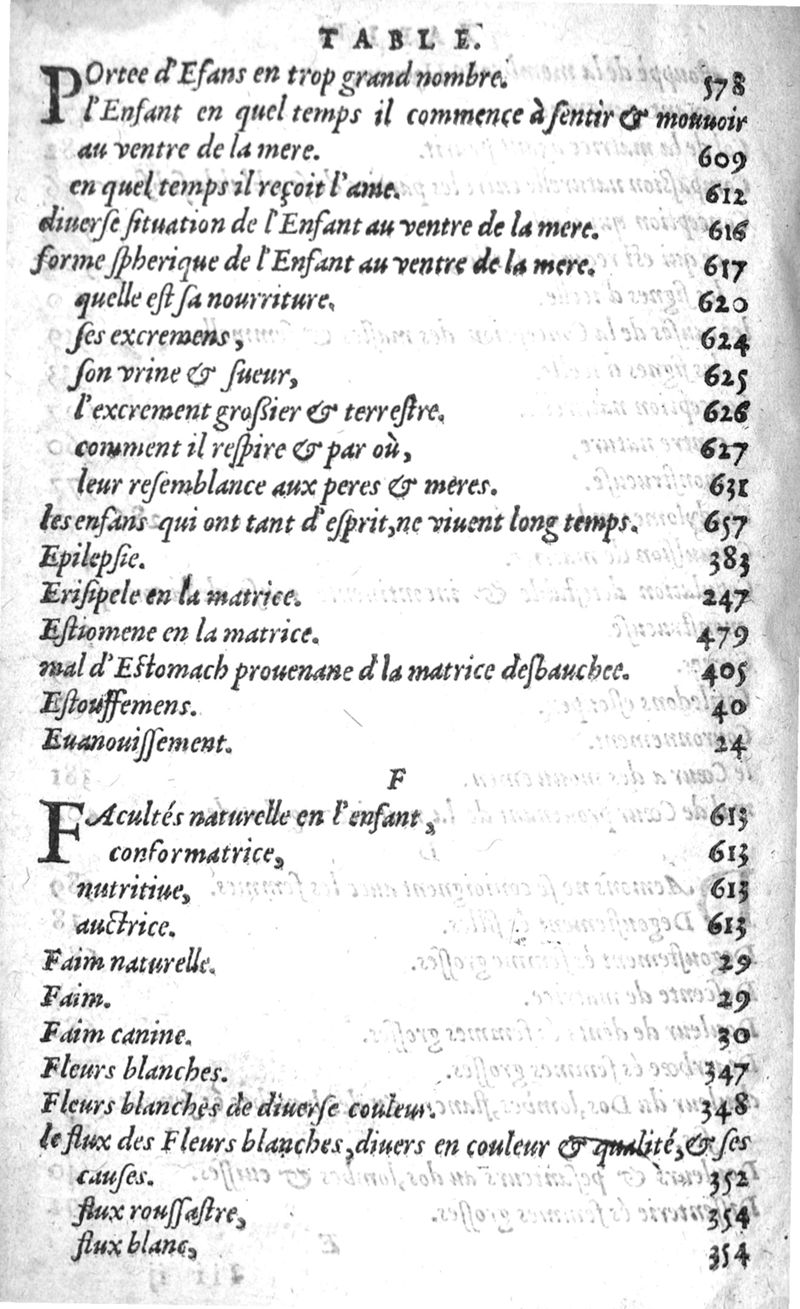 TABLE.
POrtee d'Efans en trop grand nombre. 578
l'Enfant en quel temps il commence à ſentir & mouuoir
au ventre de la mere. 609
en quel temps il reçoit l'ame. 612
diuerſe ſituation de l'Enfant au ventre de la mere. 616
forme ſpherique de l'Enfant au ventre de la mere. 617
quelle eſt ſa nourriture. 620
ſes excremens, 624
ſon vrine & ſueur, 625
l'excrement groſsier & terreſtre. 626
comment il reſpire & par où, 627
leur reſemblance aux peres & meres. 631
les enfans qui ont tant d'eſprit, ne viuent long temps. 657
Epilepſie. 383
Eriſipele en la matrice. 247
Eſtiomene en la matrice. 479
mal d'Eſtomach prouenane d'la matrice desbauchee. 405
Eſtouffemens. 40
Euanouiſſement. 24
F
FAcultés naturelle en l'enfant, 613
conformatrice, 613
nutritiue, 613
auctrice. 613
Faim naturelle. 29
Faim. 29
Faim canine. 30
Fleurs blanches. 347
Fleurs blanches de diuerſe couleur. 348
le flux des Fleurs blanches, diuers en couleur & qualité, & ſes
cauſes. 352
flux rouſſaſtre, 354
flux blanc, 354